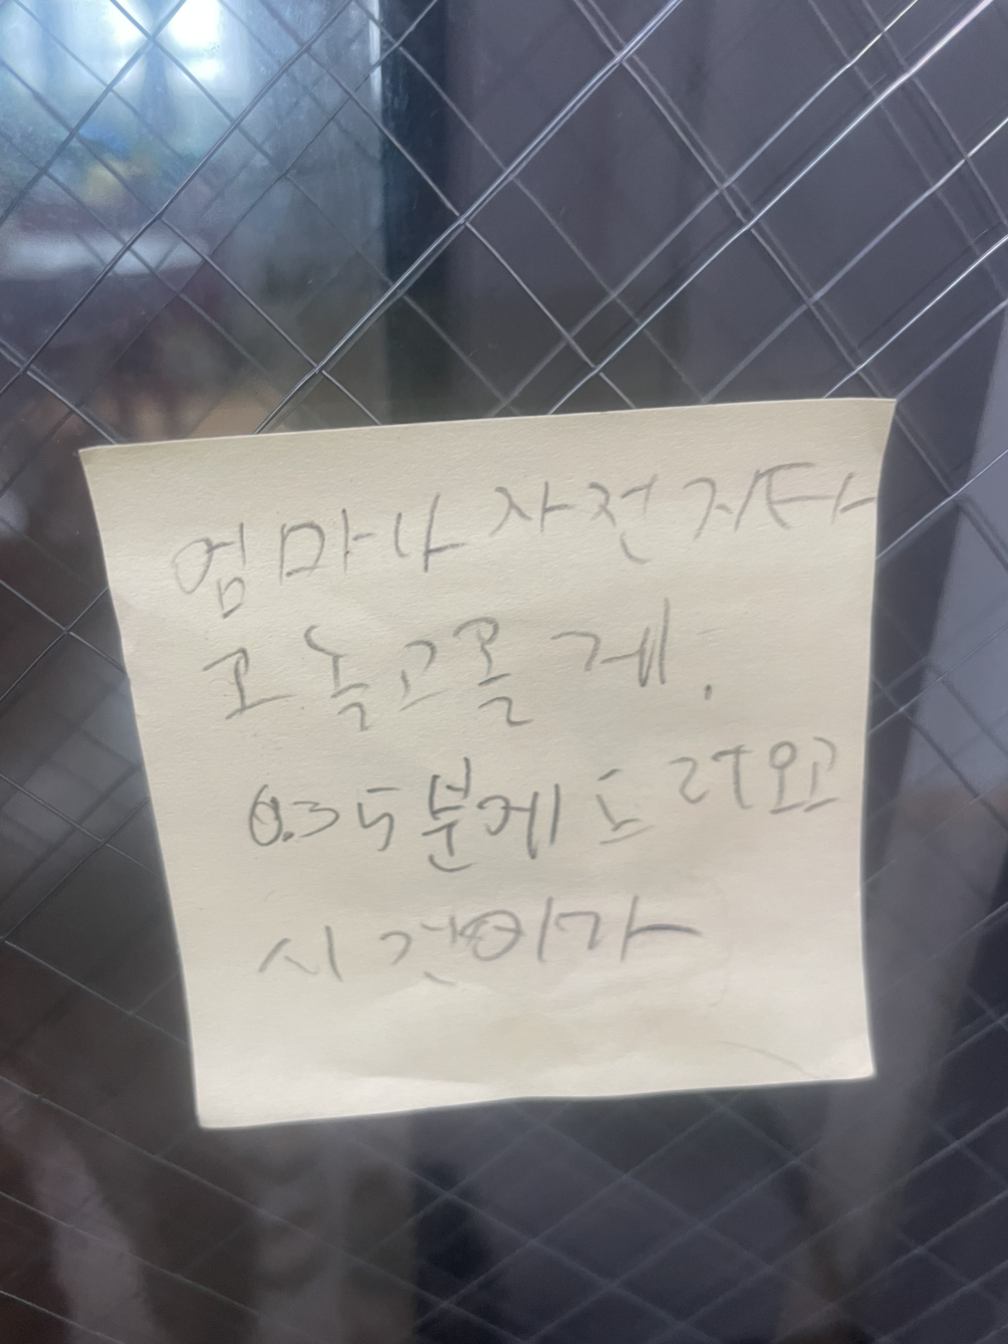 엄마나 자전거타
고 놀고올게.
0.35분에 도라오고
시간이가